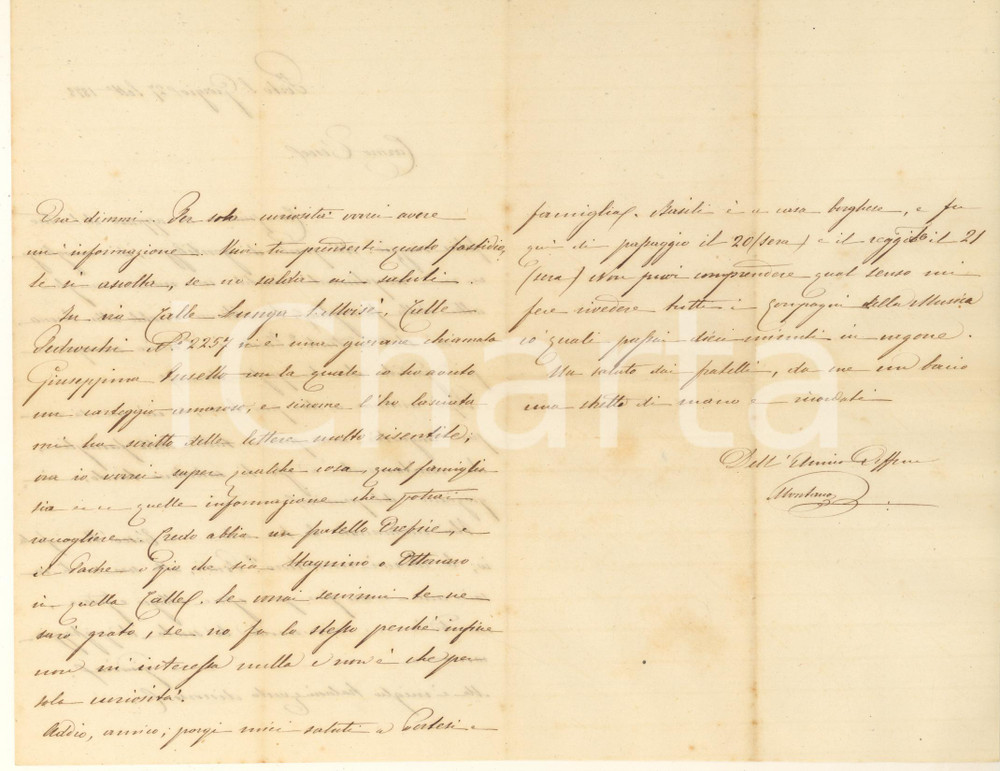 Ora dimmi. Per sola curiosità vorrei avere
un' informazione. Vuoi tu prenderti questo fastidio,
se sì ascolta, se no salda ai saluti.
In via Calle Lunga S. Moisè, Calle
N.° 2257 vi è una giovane chiamata
Giuseppina con la quale io ho avuto
un carteggio amoroso, e siccome l'ho lasciata
mi ha scritto delle lettere molto risentite;
ora io vorrei saper qualche cosa, qual famiglia
sia e quelle informazione che potrai
raccogliere. Credo abbia un fratello Orefice, e
il Padre o zio che sia Stagnino o Ottonaro
in quella Calle. Se vorrai servirmi te ne
sarò grato, se no fa lo stesso perché infine
non m' interessa nulla e non è che per
sola curiosità.
Addio, amico; porgi miei saluti a e
famiglia. è a casa borghese, e fu
qui di passaggio il 20 (sera) e il 21
(sera) Non puoi comprendere qual senso mi
fece rivedere tutti i compagni della Musica
coi quali passai dieci minuti in
Un saluto dai fratelli, da me un bacio
una stretta di mano e ricordati
Dell'
iCharta